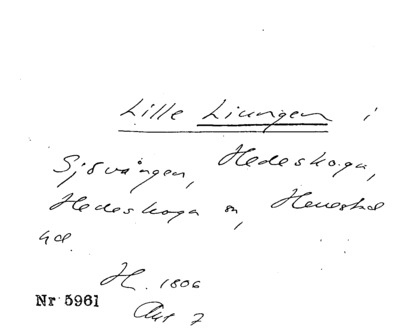 Lille Liungen i
Sjövången, Hedeskoga,
Hedeskoga sn, Herrestad
hd.
H. 1806
Akt 7
Nr 5961